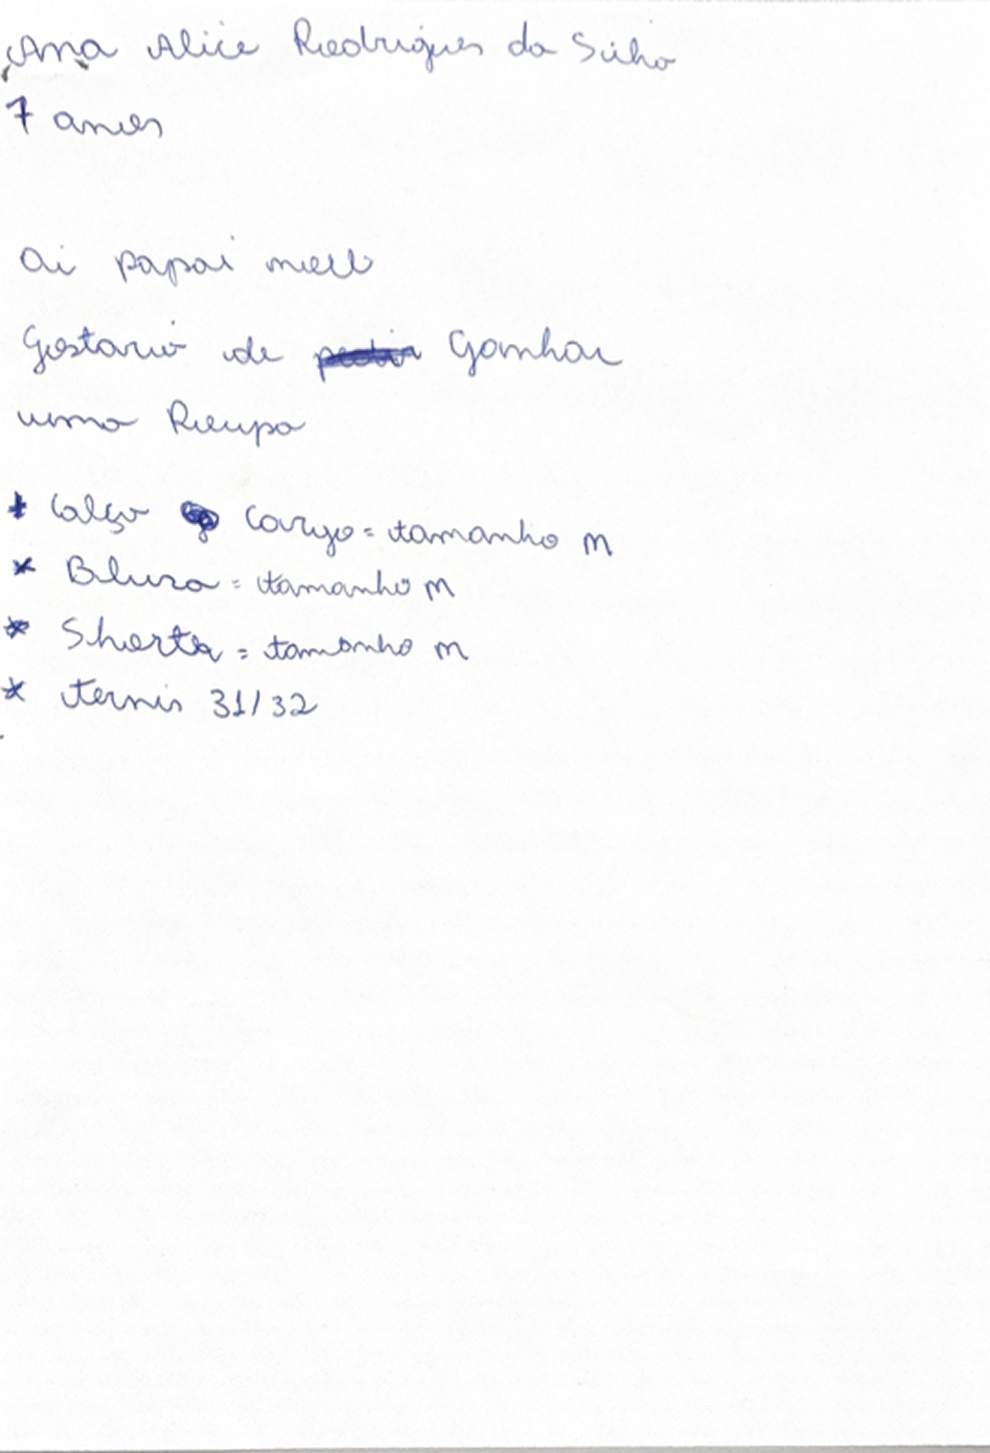 Ana Alice Rodrigues da Silva
7 anos
Oi papai noel
Gostaria de pedir Ganhar
uma Roupa
* Calça Cargo = tamanho M
* Blusa = tamanho M
* Shorts = tamanho M
* tenis 31/32